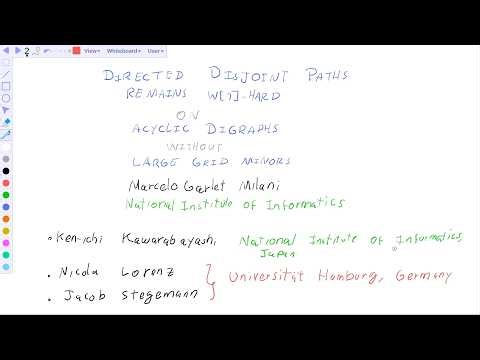 View▾ Whiteboard▾ User▾
DIRECTED DISJOINT PATHS
REMAINS W[1]-HARD
ON
ACYCLIC DIGRAPHS
WITHOUT
LARGE GRID MINORS
Marcelo Garlet Milani
National Institute of Informatics
• Ken-ichi Kawarabayashi National Institute of Informatics,
Japan
• Nicola Lorenz
Universität Hamburg, Germany
• Jacob Stegemann